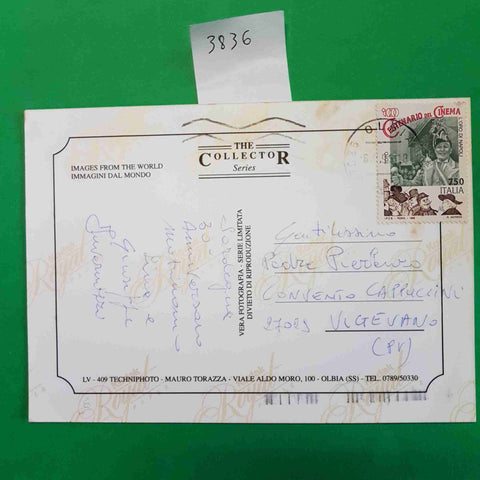 3836
100
CENTENARIO DEL CINEMA
L'ORO DI NAPOLI
750
ITALIA
THE
COLLECTOR
Series
IMAGES FROM THE WORLD
IMMAGINI DAL MONDO
Sardegna
30
Anniversario
Matrimonio
e
Giuseppe
VERA FOTOGRAFIA - SERIE LIMITATA
DIVIETO DI RIPRODUZIONE
Gentilissimo
Padre Pierenzo
CONVENTO CAPPUCCINI
27029 VIGEVANO
(PV)
LV - 409 TECHNIPHOTO - MAURO TORAZZA - VIALE ALDO MORO, 100 - OLBIA (SS) - TEL. 0789/50330